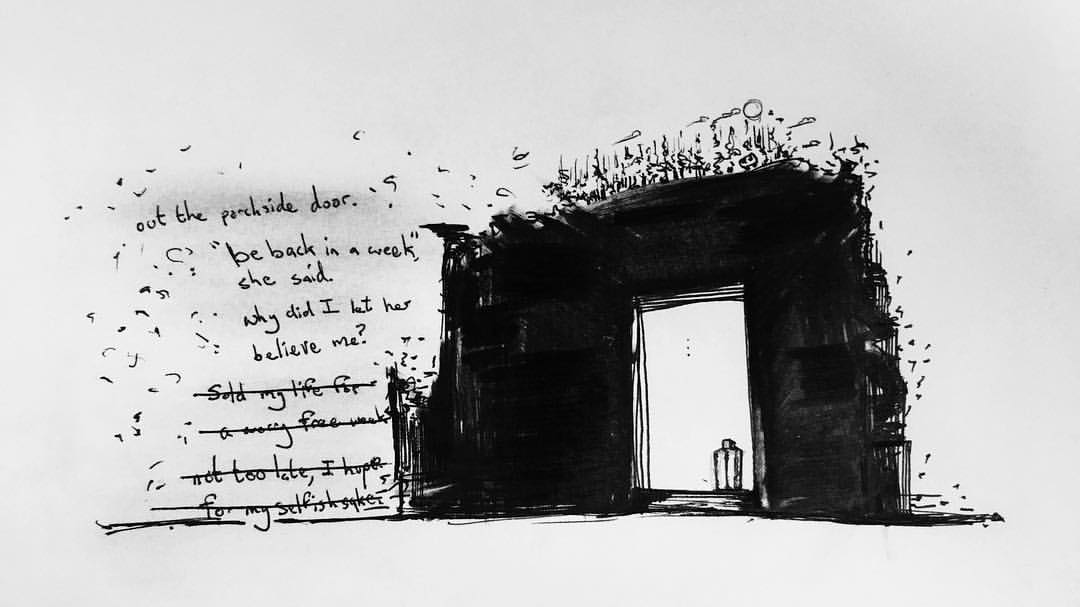 out the porchside door.
"be back in a week",
she said.
why did I let her
believe me?
Sold my life for
a worry free week
not too late, I hope?
for my selfish sake.